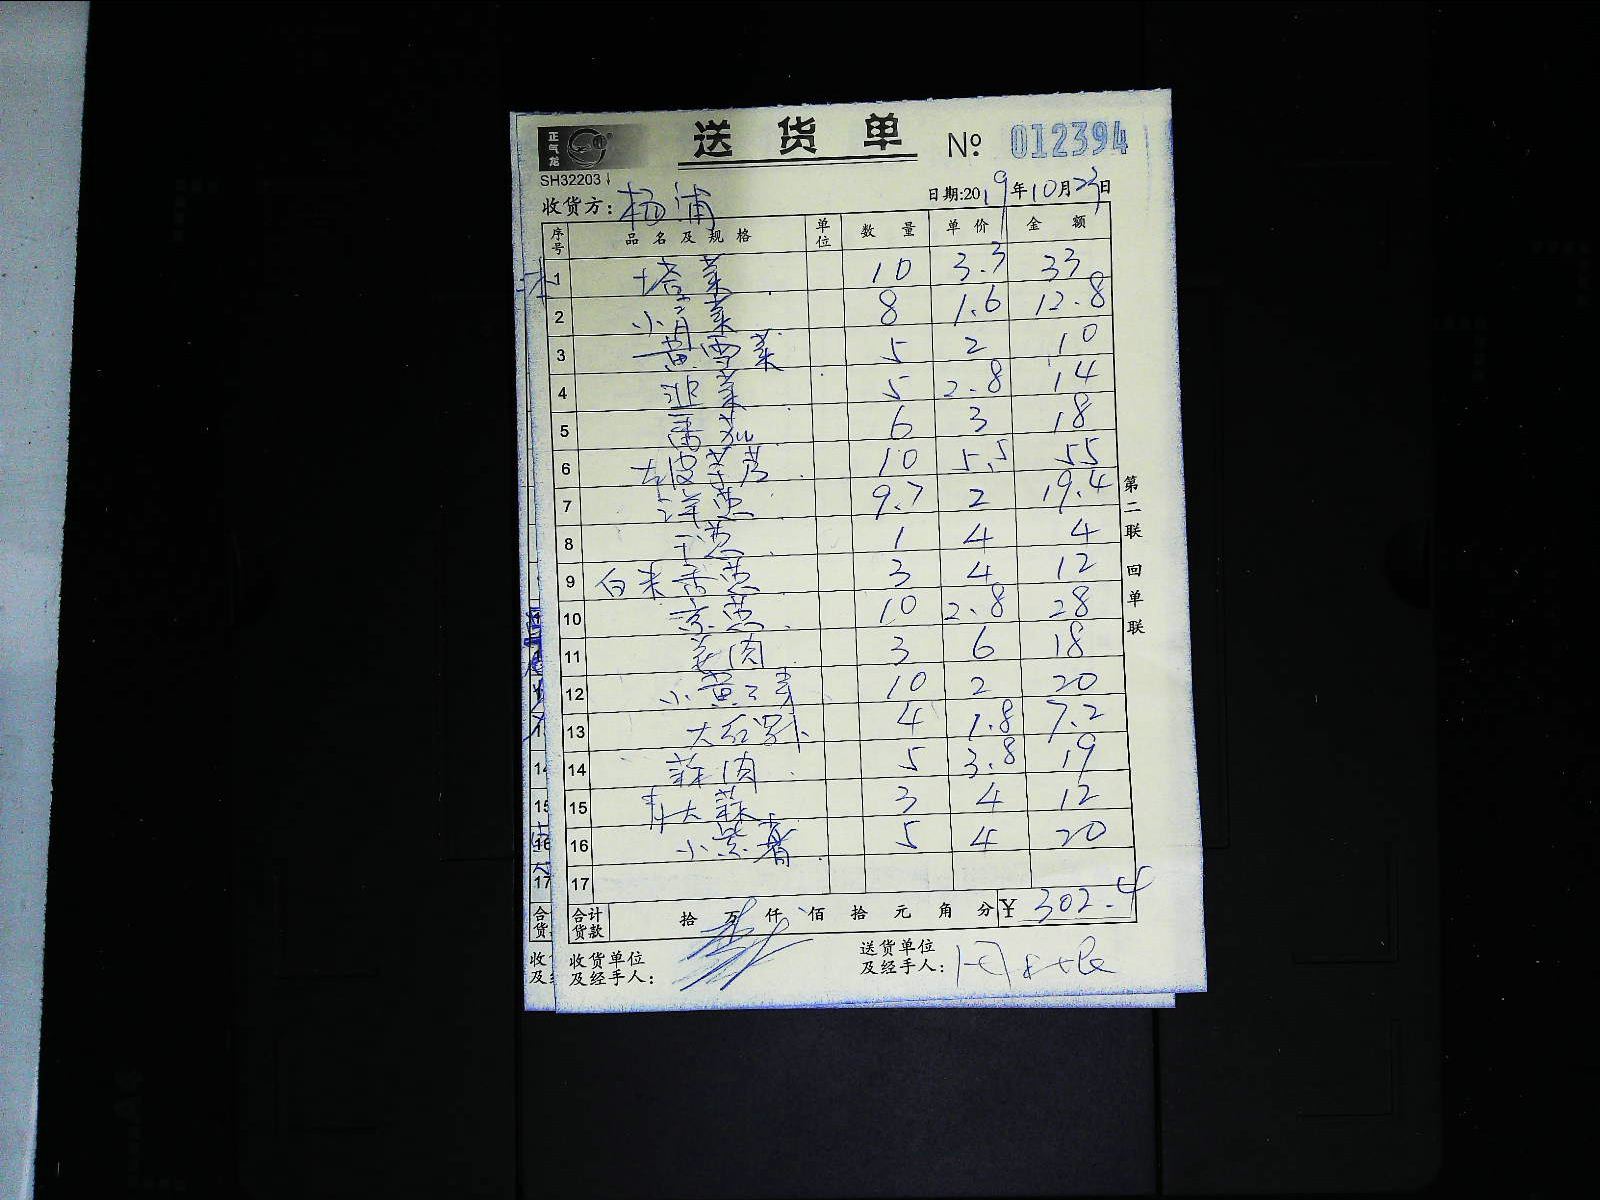 正气龙
送货单 № 012394
SH32203
收货方: 杨浦 日期:2019年10月23日
序号 品名及规格 单位 数量 单价 金额
1 塔菜 10 3.3 33
2 小青菜 8 1.6 12.8
3 黄雪菜 5 2 10
4 韭菜 5 2.8 14
5 番茄 6 3 18
6 10 5.5 55
7 洋葱 9.7 2 19.4
8 干葱 1 4 4
9 白米香葱 3 4 12
10 京葱 10 2.8 28
11 姜肉 3 6 18
12 小黄 10 2 20
13 大红罗卜 4 1.8 7.2
14 蒜肉 5 3.8 19
15 青大蒜 3 4 12
16 小紫薯 5 4 20
17
合计货款 拾万仟佰拾元角分 ¥ 302.4
收货单位及经手人:
送货单位及经手人:
第二联 回单联